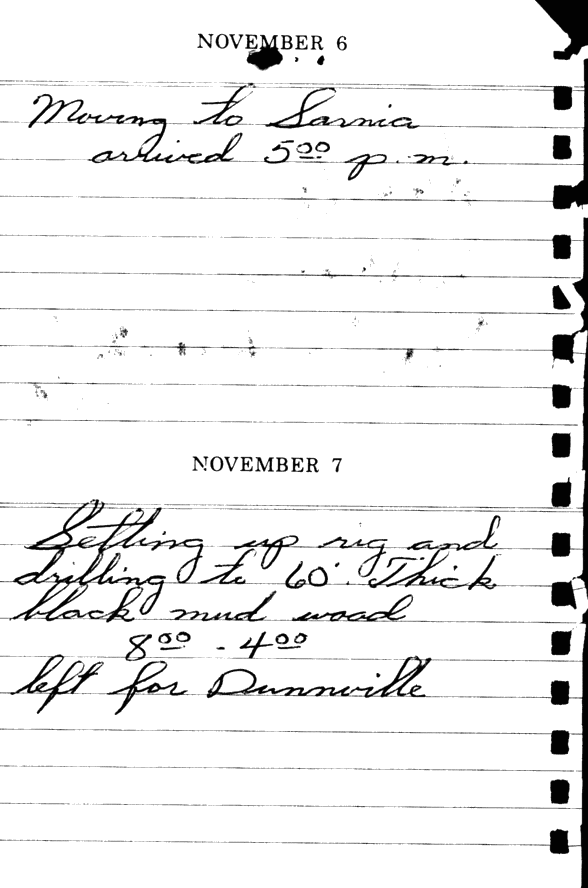 NOVEMBER 6
Moving to Sarnia
arrived 5⁰⁰ p.m.
NOVEMBER 7
Setting up rig and
drilling to 60'. Thick
black mud wood
8⁰⁰ - 4⁰⁰
left for Dunnville